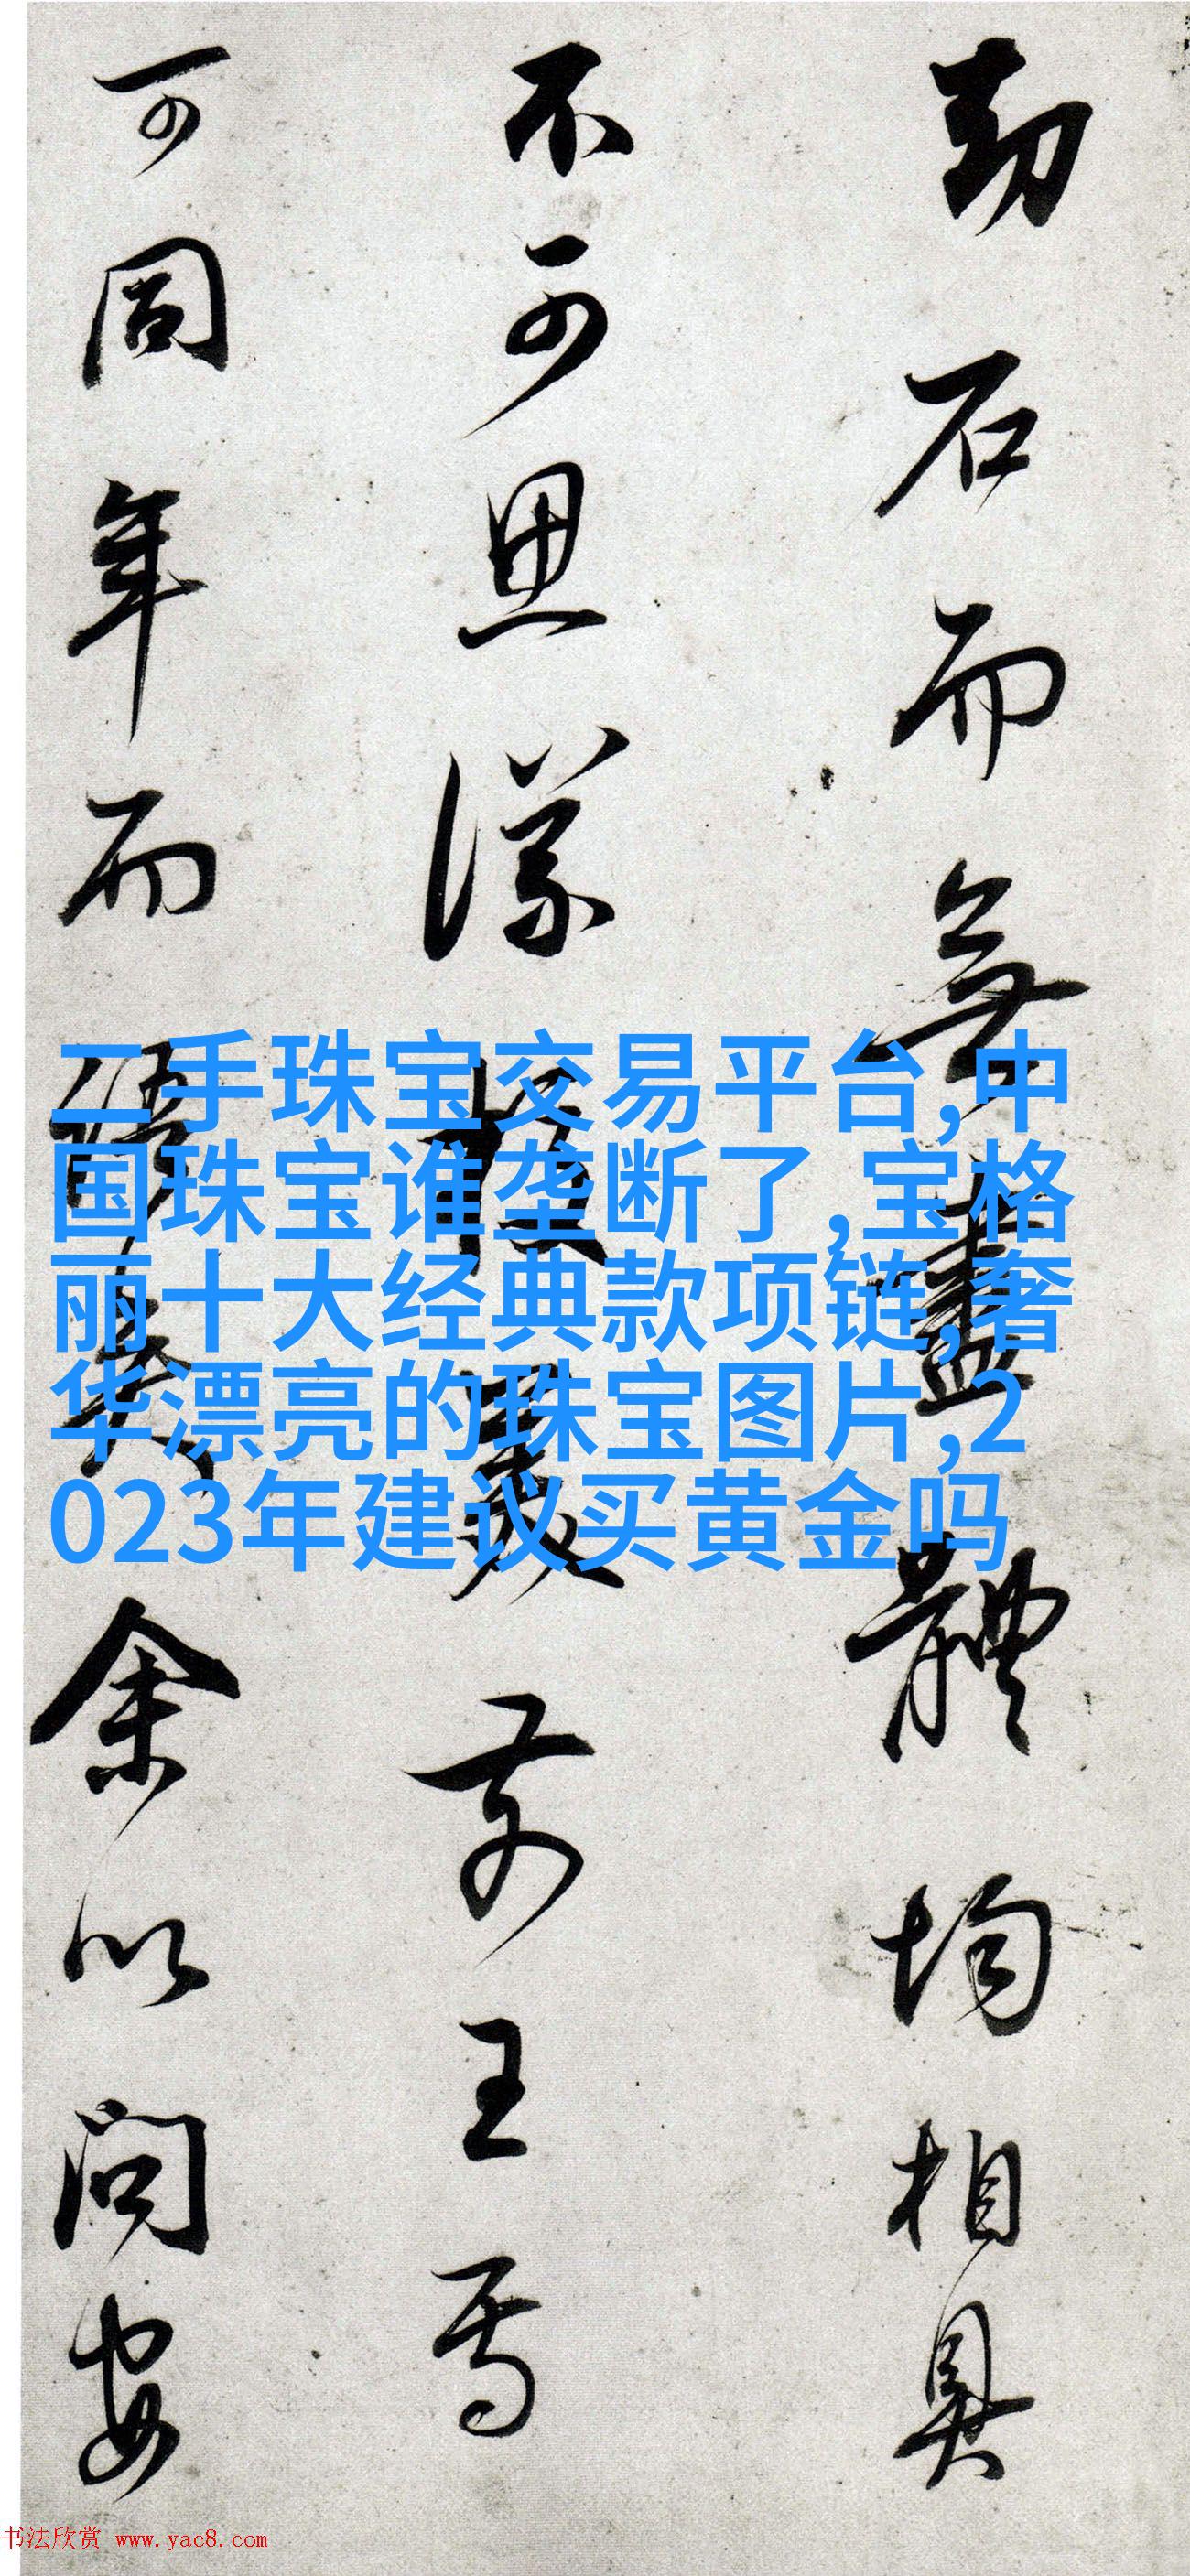 劫石而無盡體均相具
不可思議
前王焉
可同年而語矣余以問安
二手珠宝交易平台,中
国珠宝谁垄断了,宝格
丽十大经典款项链,奢
华漂亮的珠宝图片,2
023年建议买黄金吗
书法欣赏 www.yac8.com